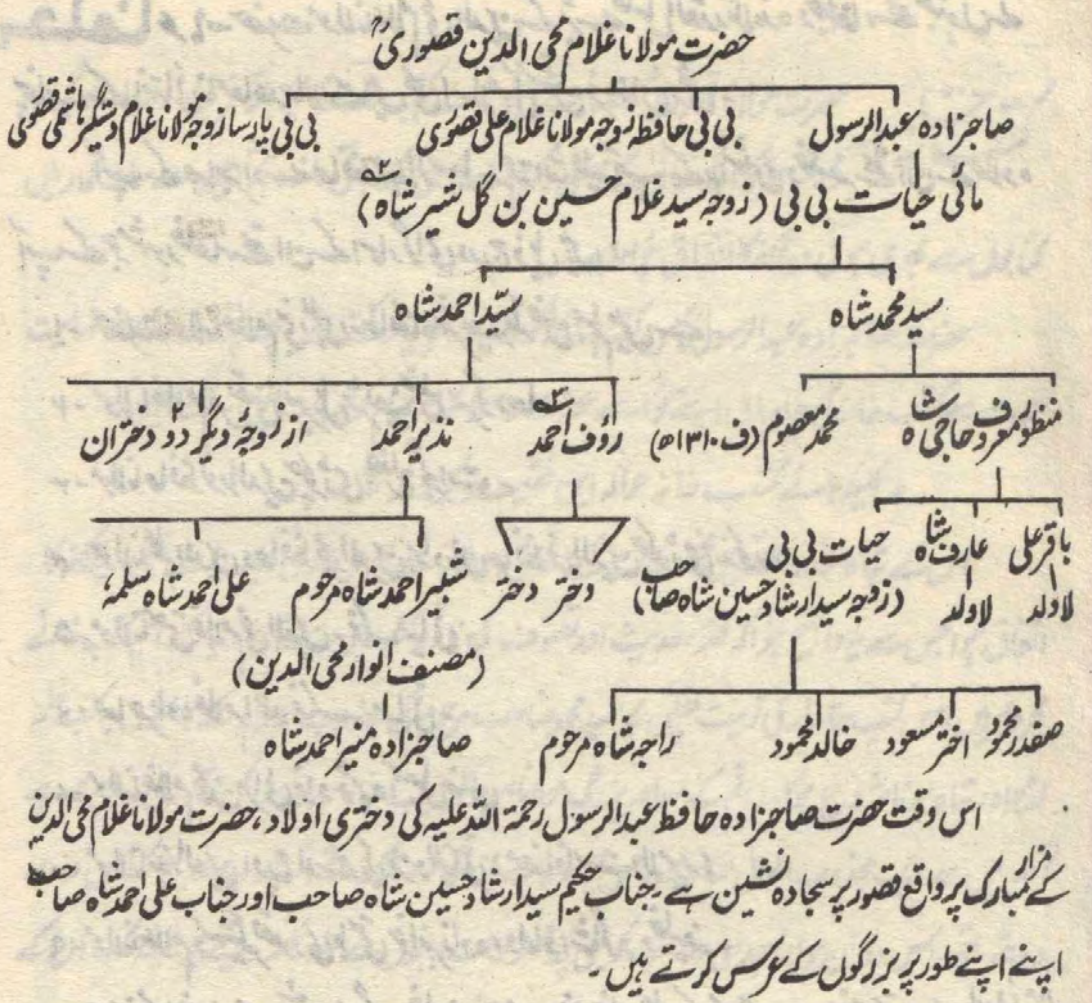 حضرت مولانا غلام محی الدین قصوریؒ
صاحبزادہ عبدالرسول بی بی حافظہ زوجہ مولانا غلام علی قصوری بی بی پارسا زوجہ مولانا غلام دستگیر ہاشمی قصوری
مائی حیات بی بی (زوجہ سید غلام حسین بن گل شیر شاہ) ۲
سید محمد شاہ سید احمد شاہ
منظور معروف حاجی شاہ محمد معصوم (ف ۱۳۱۰ھ) رؤف احمد ۳ نذیر احمد از زوجۂ دیگر دو ۲ دختران
باقر علی عارف شاہ حیات بی بی
لاولد لاولد (زوجہ سید ارشاد حسین شاہ صاحب) دختر دختر شبیر احمد شاہ مرحوم علی احمد شاہ سلمہ،
(مصنف انوار محی الدین)
صفدر محمود اختر مسعود خالد محمود راجہ شاہ مرحوم صاحبزادہ منیر احمد شاہ
اس وقت حضرت صاحبزادہ حافظ عبدالرسول رحمۃ اللہ علیہ کی دختری اولاد، حضرت مولانا غلام محی الدین
کے مزار مبارک پر واقع قصور پر سجادہ نشین ہے۔ جناب حکیم سید ارشاد حسین شاہ صاحب اور جناب علی احمد شاہ صاحب
اپنے اپنے طور پر بزرگوں کے عرس کرتے ہیں۔